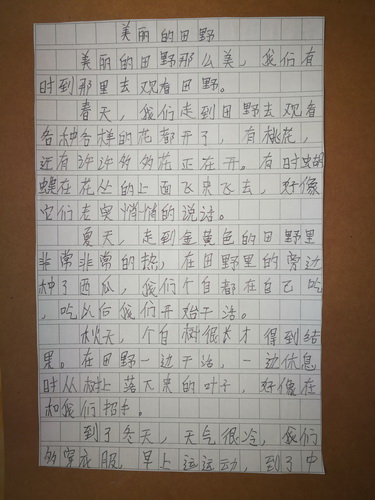 美丽的田野
美丽的田野那么美，我们有
时到那里去观看田野。
春天，我们走到田野去观看
各种各样的花都开了，有桃花，
还有许许多多花正在开。有时蝴
蝶在花丛的上面飞来飞去，好像
它们在悄悄的说话。
夏天，走到金黄色的田野里
非常非常的热，在田野里的旁边
种了西瓜，我们个自都在自己吃
，吃以后我们开始干活。
秋天，个自树很长才得到结
果。在田野一边干活，一边休息
时从树上落下来的叶子，好像在
和我们招手。
到了冬天，天气很冷，我们
多穿衣服，早上运运动，到了中